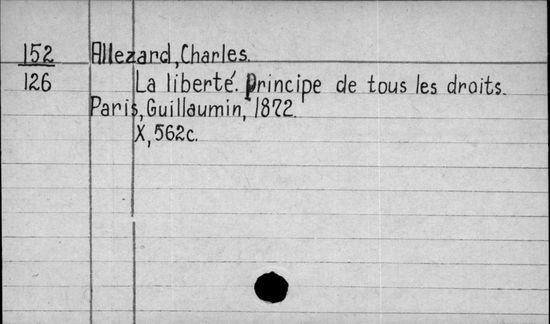 152 Allezard, Charles.
126 La liberté. Principe de tous les droits.
Paris, Guillaumin, 1872.
X, 562c.